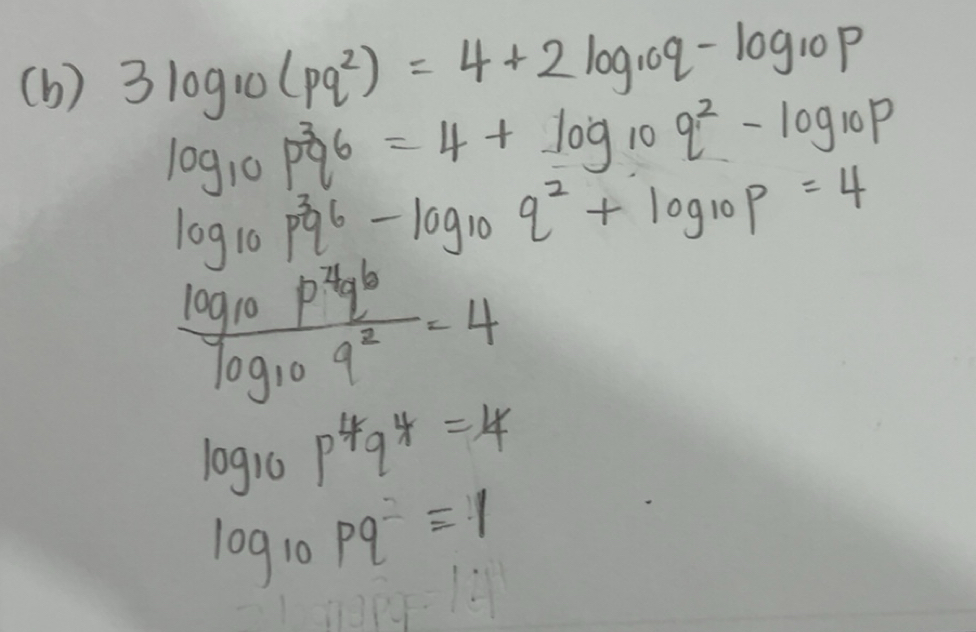 (b) 3 log10 (pq²) = 4 + 2 log10 q - log10 p
log10 p³q⁶ = 4 + log10 q² - log10 p
log10 p³q⁶ - log10 q² + log10 p = 4
log10 p⁴q⁶
log10 q² = 4
log10 p⁴q⁴ = 4
log10 pq = 1